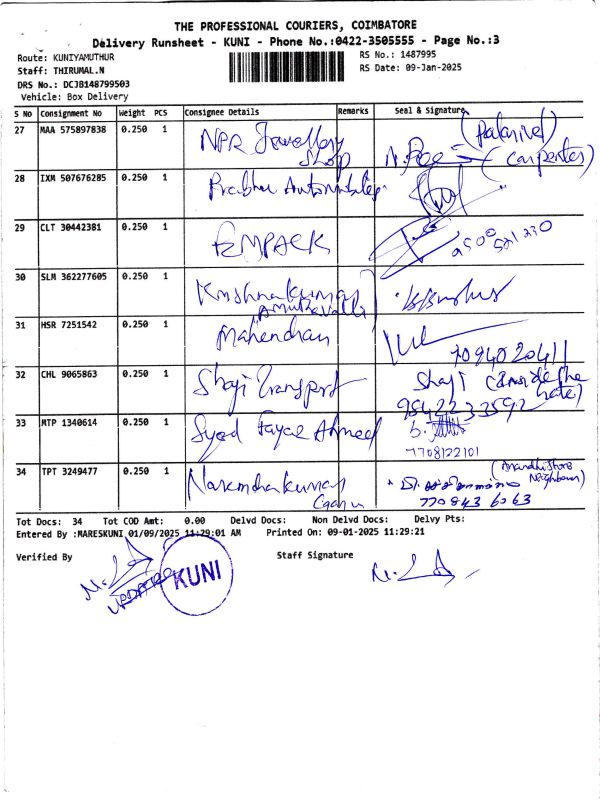 THE PROFESSIONAL COURIERS, COIMBATORE
Delivery Runsheet - KUNI - Phone No.:0422-3505555 - Page No.:3
Route: KUNIYAMUTHUR
RS No.: 1487995
Staff: THIRUMAL.N
RS Date: 09-Jan-2025
DRS No.: DCJB148799503
Vehicle: Box Delivery
S No Consignment No Weight PCS Consignee Details Remarks Seal & Signature
27 MAA 575897838 0.250 1 NPR Jewellery Shop (carpenter)
28 IXM 507676285 0.250 1 Prabhu Automobiles
29 CLT 30442381 0.250 1 FEMPACK
30 SLM 362277605 0.250 1 Krishnakumar
31 HSR 7251542 0.250 1 Mahendran 7094020411
32 CHL 9065863 0.250 1 Shaji Transport Shaji
9842233592
33 MTP 1340614 0.250 1 Syed Fayaz Ahmed
7708122101
34 TPT 3249477 0.250 1 Narendhakumar
Neighbour)
770843 6063
Tot Docs: 34 Tot COD Amt: 0.00 Delvd Docs: Non Delvd Docs: Delvy Pts:
Entered By :MARESKUNI 01/09/2025 11:29:01 AM Printed On: 09-01-2025 11:29:21
Verified By Staff Signature
KUNI